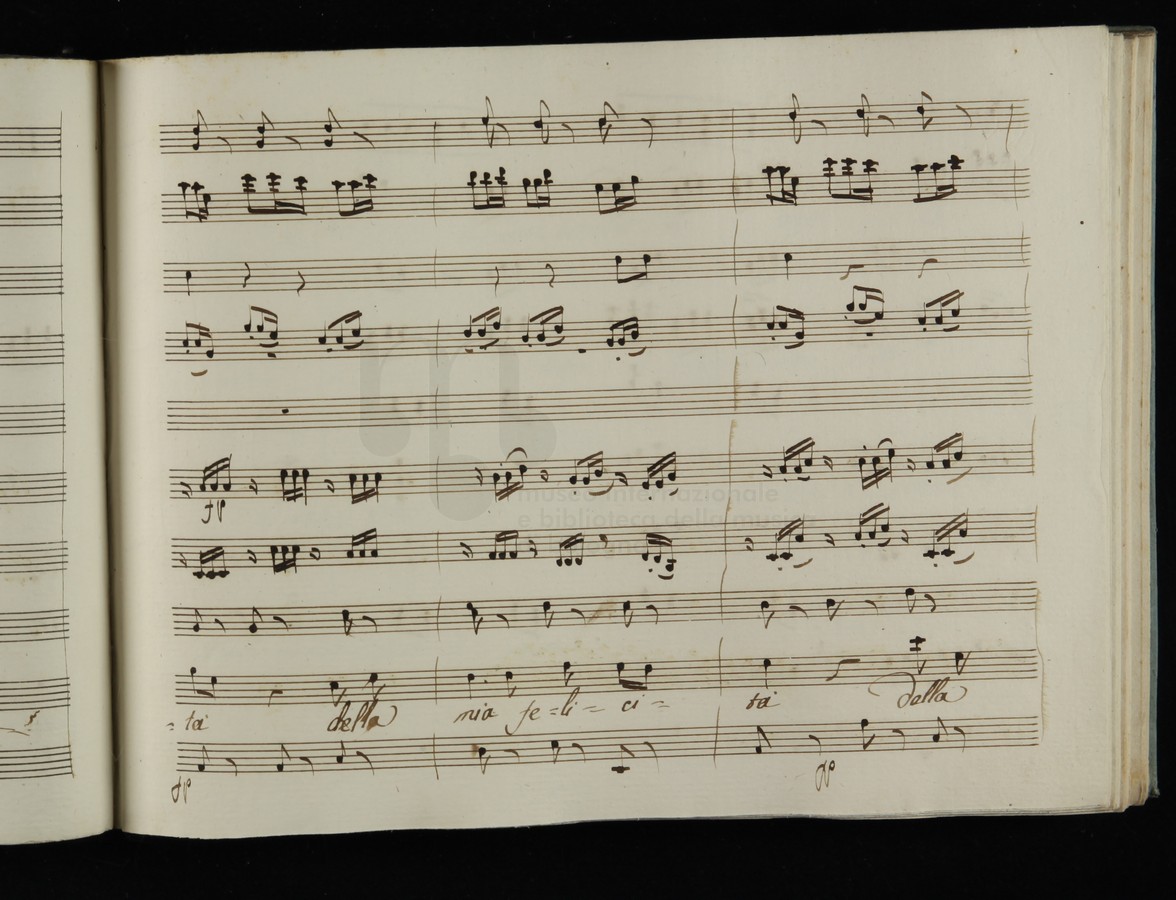 museo internazionale
e biblioteca della musica
fp
= tà della mia fe=li= ci= tà della
fp fp